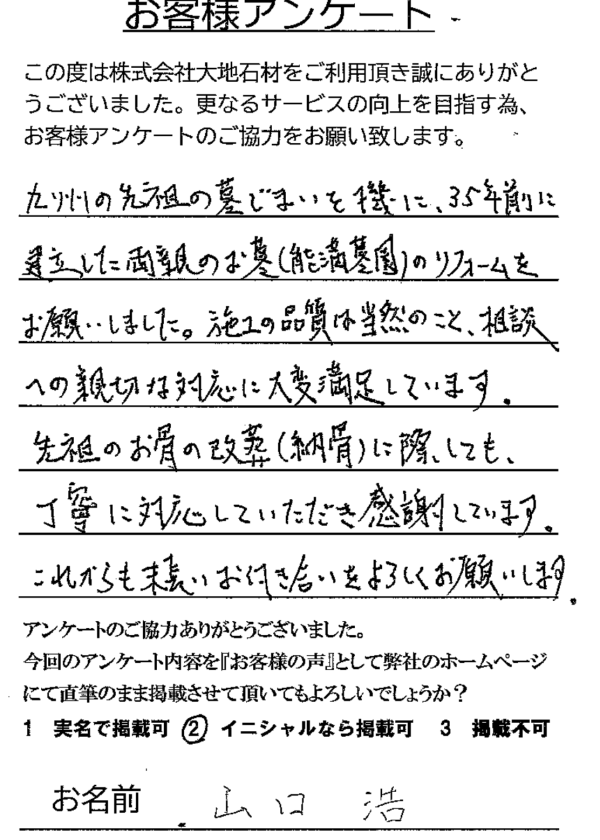 お客様アンケート
この度は株式会社大地石材をご利用頂き誠にありがと
うございました。更なるサービスの向上を目指す為、
お客様アンケートのご協力をお願い致します。
九州の先祖の墓じまいを機に、35年前に
建立した両親のお墓(能満墓園)のリフォームを
お願いしました。施工の品質は当然のこと、相談
への親切な対応に大変満足しています。
先祖のお骨の改葬(納骨)に際しても、
丁寧に対応していただき感謝しています。
これからも末長いお付き合いをよろしくお願いします。
アンケートのご協力ありがとうございました。
今回のアンケート内容を『お客様の声』として弊社のホームページ
にて直筆のまま掲載させて頂いてもよろしいでしょうか？
1 実名で掲載可 ② イニシャルなら掲載可 3 掲載不可
お名前 山口 浩